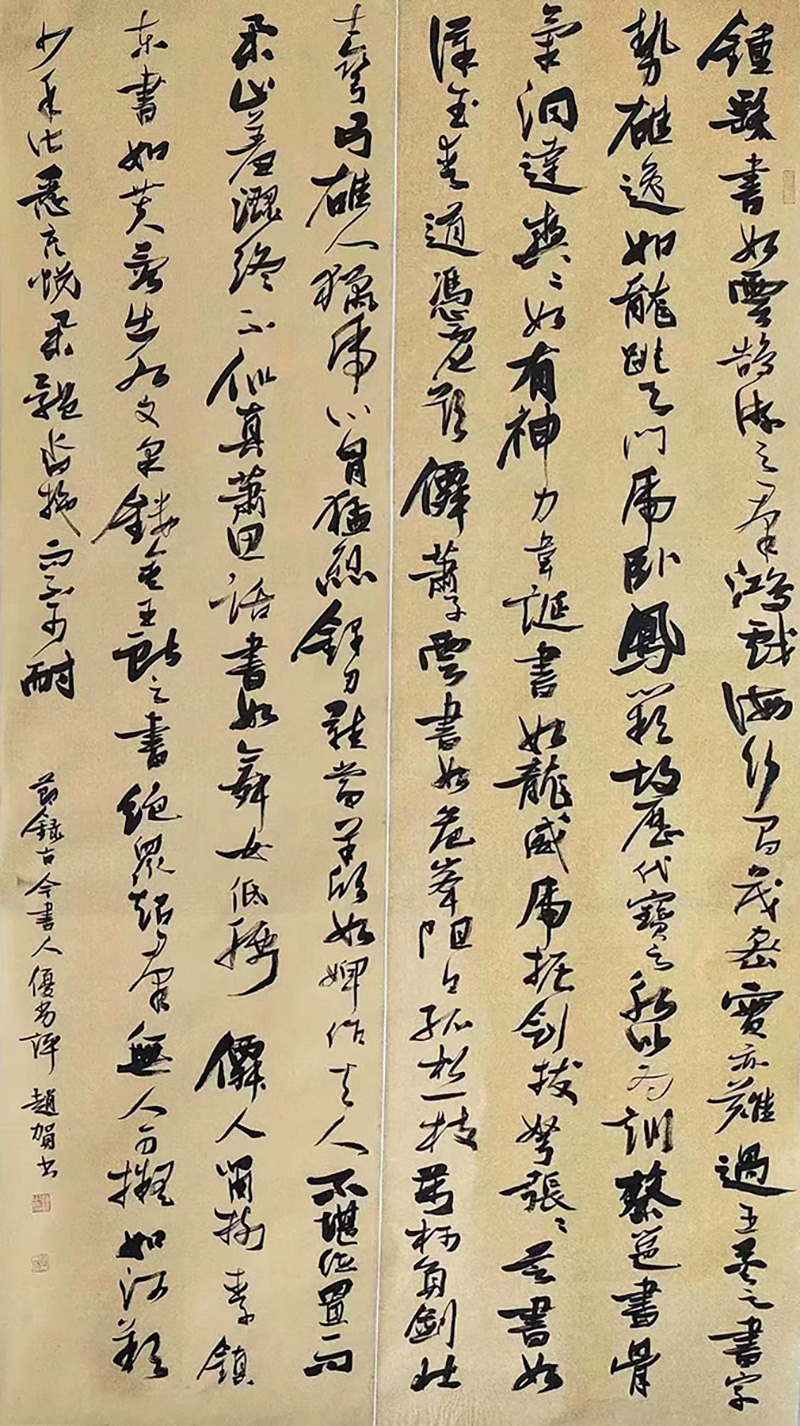 鍾繇書如雲鵠游天羣鴻戲海行間茂密實亦難過王羲之書字
勢雄逸如龍跳天門虎卧鳳闕故歷代寶之永以為訓蔡邕書骨
氣洞達爽〻如有神力韋誕書如龍威虎振劍拔弩張〻芝書如
漢武愛道馮虛欲僊蕭子雲書如危峯阻日孤松一枝荊柯負劍壯
士彎弓雄人獵虎心胷猛烈鋒刃難當羊欣如婢作夫人不堪位置而
舉止羞澀終不似真蕭思話書如舞女低腰僊人嘯樹李鎮
東書如芙蓉出水文采鏤金王獻之書絕衆超羣無人可擬如河朔
少年皆悉充悅舉體沓拖而不可耐
節録古今書人優劣評 趙賀書